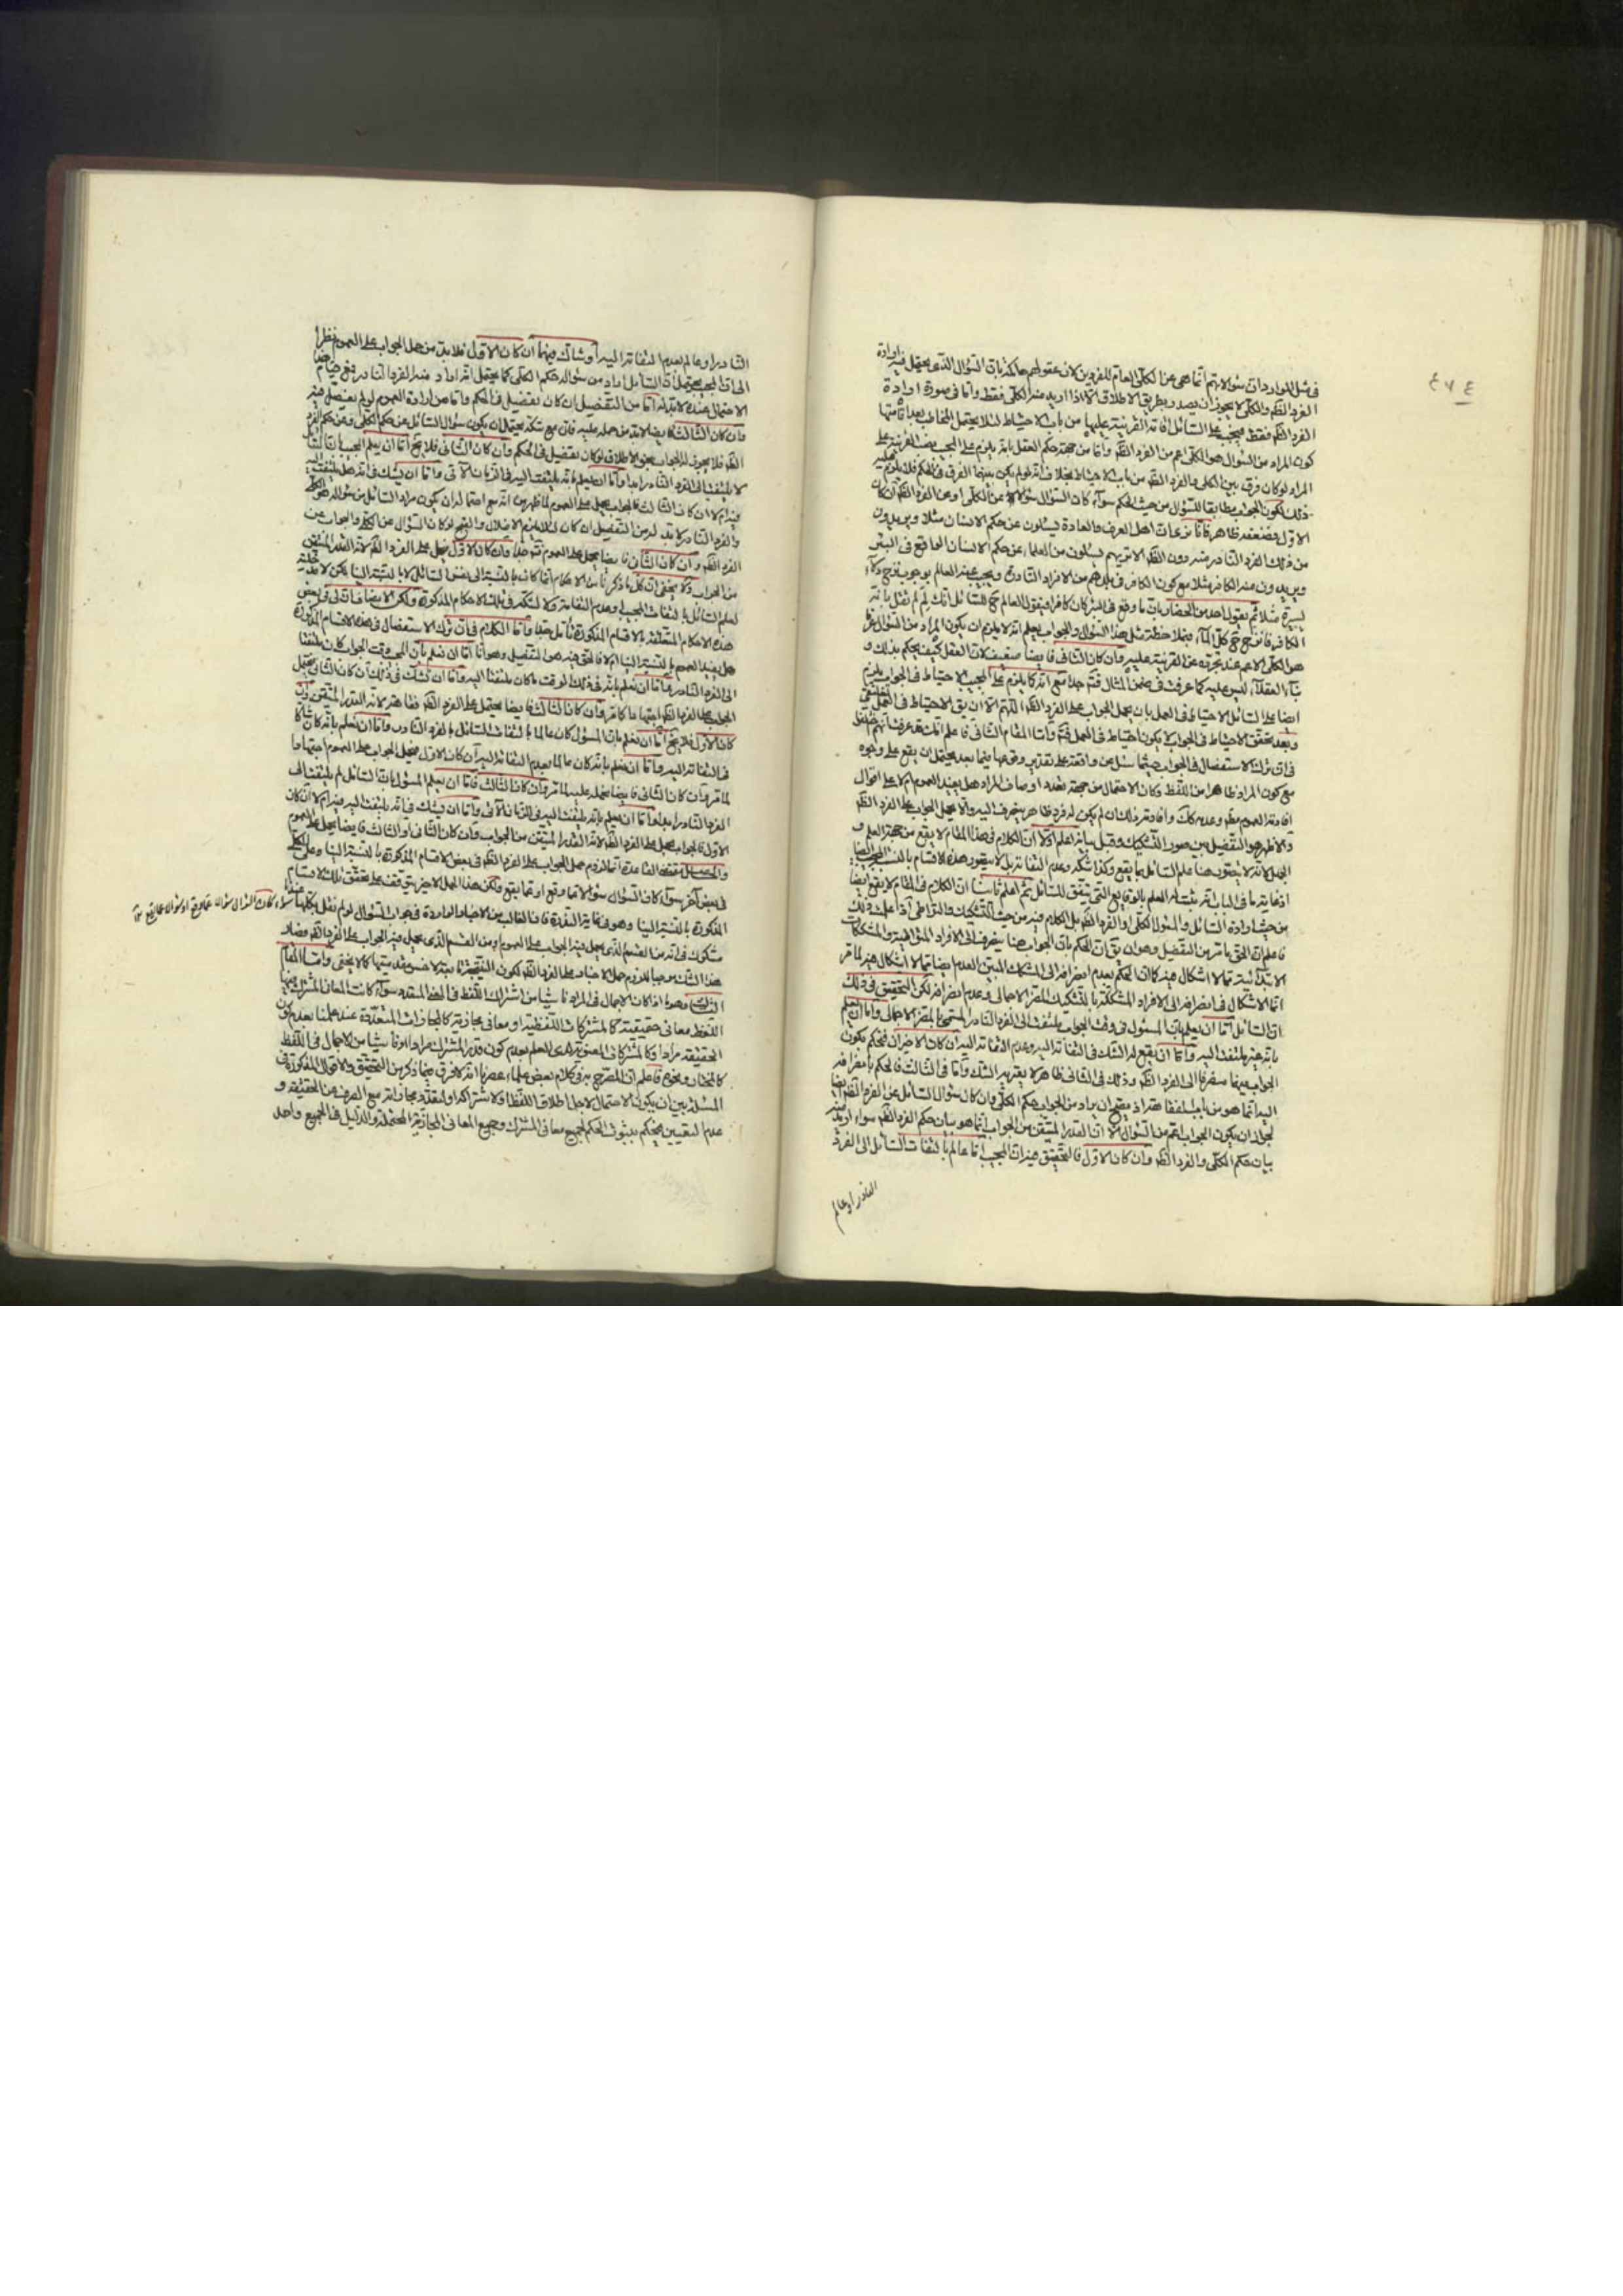 ٤٧٤
في مثل الموارد ان سؤالاتهم انما هي عن الكلي العام للفردين لان عقولهم حاكمة بان السؤال الذي يحتمل فيه ارادة
الفرد الظم والكلي لا يجوز ان يصدر بطريق الاطلاق الا اذا اريد منه الكلي فقط واما في صورة ارادة
الفرد الظم فقط فيجب على السائل اقامة القرينة عليها من باب الاحتياط لئلا يحتمل المخاطب
كون المراد من السؤال هو الكلي اعم من الفرد الظم واما من جهة حكم العقل بانه يلزم على المجيب
المراد لو كان فرق بين الكلي والفرد الظم من باب الاحتياط بخلاف انه لو لم يكن بينهما الفرق في الحكم فلا يلزم عليه
ذلك لكون الجواب مطابقا للسؤال من حيث الحكم سواء كان السؤال سؤالا عن الكلي او عن الفرد الظم ان كان
الاول فضعفه ظاهر فانا نرى ان اهل العرف والعادة يسئلون عن حكم الانسان مثلا ويريدون
من ذلك الفرد النادر منه دون الظم الا ترى انهم يسئلون من العلماء عن حكم الانسان الواقع في البئر
ويريدون منه الكافر مثلا مع كون الكافر في بلدهم من الافراد النادرة ويجيب عنه العالم بوجوب نزح دلاء
يسيرة مثلا ثم يقول احد من الحضار بان ما وقع في البئر كان كافرا فيقول العالم ح للسائل انك لم لم تقل بانه
الكافر فانزح ح كل الماء فبملاحظة مثل هذا السؤال والجواب يعلم انه لا يلزم ان يكون المراد من السؤال
هو الكلي الاعم عند تجرده عن القرينة عليه وان كان الثاني فايضا ضعيف لان العقل كيف يحكم بذلك و
بناء العقلاء ليس عليه كما عرفت في ضمن المثال فتم جدا مع انه كما يلزم على المجيب الاحتياط في الجواب يلزم
ايضا على السائل الاحتياط في العمل بان يحمل الجواب على الفرد الظم اللهم الا ان يق الاحتياط في العمل
وبعد تحقق الاحتياط في الجواب لا يكون احتياط في العمل فتم واما المقام الثاني فاعلم انك قد عرفت انهم اختلفوا
في ان ترك الاستفصال في الجواب حيثما سئل عن واقعة على تقدير وقوعها فيما بعد يحتمل ان يقع على وجوه
مع كون المراد ظاهرا من اللفظ وكان الاحتمال من جهة تعدد اوصاف المراد هل يفيد العموم ام لا على اقوال
افادة العموم مطم وعدمه كك وافادته ذلك ان لم يكن له فرد ظاهر ينصرف اليه والا يحمل الجواب على الفرد الظم
والاظهر هو التفصيل بين صور التشكيك وقبل بيانه اعلم اولا ان الكلام في هذا المقام لا يقع من جهة العلم و
الجهل لانه لا يتصور هنا علم السائل بما يقع وكذا شكه وعدم التفاته بل لا يتصور هذه الاقسام بالنسبة
اذ غاية ما في الباب انه يثبت له العلم بالوقايع التي يتفق للسائل ثم اعلم ثانيا ان الكلام في المقام لا يقع ايضا
من حيث ارادة السائل والمسئول الكلي او الفرد الظم بل الكلام فيه من حيث التشكيك والتواطي اذا علمت ذلك
فاعلم ان الحق ما مر من التفصيل وهو ان يق ان الحكم بان الجواب هنا ينصرف الى الافراد المتواطية والمشككات
الابتدائية مما لا اشكال فيه كما ان الحكم بعدم انصرافه الى المشكك المبين العدم ايضا مما لا اشكال فيه لما مر
انما الاشكال في انصرافه الى الافراد المشككة بالتشكيك المضر الاجمالي وعدم انصرافه لكن التحقيق في ذلك
ان السائل اما ان يعلم بان المسئول في وقت الجواب ملتفت الى الفرد النادر المسمى بالمضر الاجمالي واما ان يعلم
بانه غير ملتفت اليه واما ان يقع له الشك في التفاته اليه وعدم التفاته اليه ان كان الاخيران فنحكم بكون
الجواب فيهما منصرفا الى الفرد الظم وذلك في الثاني ظاهر لا يعتريه الشك واما في الثالث فالحكم بانصرافه
لجواز ان يكون الجواب اعم من السؤال الا ان القدر المتيقن من الجواب انما هو بيان حكم الفرد الظم سواء اريد منه
بيان حكم الكلي والفرد الظم وان كان الاول فالتحقيق فيه ان المجيب اما عالم بالتفات السائل الى الفرد
النادر او عالم
النادر او عالم بعدم التفاته اليه او شاك فيهما ان كان الاول فلا بد من حمل الجواب على العموم نظرا
الى ان المجيب يحتمل ان السائل اراد من سؤاله حكم الكلي كما يحتمل انه اراد منه الفرد النادر
الاحتمال عنده لا بد له اما من التفصيل ان كان تفصيل في الحكم واما من ارادة العموم لو لم يفصل فيه
وان كان الثالث فايضا لا بد من حمله عليه فان مع شكه يحتمل ان يكون سؤال السائل عن حكم الكلي وعن حكم الفرد
الظم فلا يجوز له الجواب بنحو الاطلاق لو كان تفصيل في الحكم وان كان الثاني فلا يخ اما ان يعلم المجيب بان السائل
لا يلتفت الى الفرد النادر ابدا واما ان يعلم بانه يلتفت اليه في الزمان الآتي واما ان يشك في انه هل يلتفت اليه
فيه ام لا ان كان الثالث فالجواب يحمل على العموم لما ظهر من انه مع احتماله ان يكون مراد السائل من سؤاله هو الكلي
والفرد النادر لا بد له من التفصيل ان كان لئلا يلزم الاخلال والقبح لو كان السؤال عن الكلي والجواب عن
الفرد الظم وان كان الثاني فايضا يحمل على العموم فتم جدا وان كان الاول فيحمل على الفرد الظم لانه القدر المتيقن
من الجواب ولا يخفى ان كل ما ذكرناه من الاحكام انما كان بالنسبة الى نفس السائل لا بالنسبة الينا لكن لا بد
لعلم السائل بالتفات المجيب وعدم التفاته ولا لشكه في تلك الاحكام المذكورة ولكن الانصاف
هذه الاحكام المتعلقة بالاقسام المذكورة فتامل جدا واما الكلام في ان ترك الاستفصال في هذه الاقسام المذكورة
هل يفيد العموم بالنسبة الينا ام لا فالحق فيه هو التفصيل وهو انا اما ان نعلم بان المجيب وقت الجواب كان ملتفتا
الى الفرد النادر واما ان نعلم بانه في ذلك الوقت ما كان ملتفتا اليه واما ان نشك في ذلك ان كان الثاني يحمل
الجواب على الفرد الظم اجتهادا كما مر وان كان الثالث فايضا يحمل على الفرد الظم فقاهة لانه القدر المتيقن وان
كان الاول فلا يخ اما ان نعلم بان المسئول كان عالما بالتفات السائل بالفرد النادر واما ان نعلم بانه كان شاكا
في التفاته اليه واما ان نعلم بانه كان عالما بعدم التفاته اليه ان كان الاول فيحمل الجواب على العموم اجتهادا
لما مر وان كان الثاني فايضا يحمله عليه لما مر وان كان الثالث فاما ان يعلم المسئول بان السائل لم يلتفت الى
الفرد النادر ابدا واما ان يعلم بانه يلتفت اليه في الزمان الآتي واما ان يشك في انه يلتفت اليه فيه ام لا ان كان
الاول فالجواب يحمل على الفرد الظم لانه القدر المتيقن من الجواب وان كان الثاني او الثالث فايضا يحمل على العموم
والحاصل مقتضى القاعدة انما لزوم حمل الجواب على الفرد الظم في بعض الاقسام المذكورة بالنسبة الينا وعلى الكلي
في بعض آخر سواء كان السؤال سؤالا عما وقع او عما يقع ولكن هذا الحمل الاخير يتوقف على تحقق تلك الاقسام
سواء كان السؤال سؤالا عما وقع او سؤالا عما يقع
المذكورة بالنسبة الينا وهو في غاية الندرة فان الغالب من الاخبار الواردة في جواب السؤال لو لم نقل بكلها
مشكوك في انه من القسم الذي يحمل فيه الجواب على العموم او من القسم الذي يحمل فيه الجواب على الفرد الظم فصار
هذا الشك موجبا للزوم حمل الاخبار على الفرد الظم لكون النتيجة تابعة لاخس مقدمتيها كما لا يخفى واما المقام
الثالث وهو ما اذا كان الاجمال في المراد ناشيا من اشتراك اللفظ في المعنى المتعدد سواء كانت المعاني المشترك فيها
اللفظ معاني حقيقية كالمشتركات اللفظية او معاني مجازية كالمجازات المتعددة عند علمنا بعدم كون
الحقيقة مرادا وكالمشتركات المعنوية لدى العلم بعدم كون قدر المشترك مرادا او ناشيا من الاجمال في اللفظ
كالمختار ونحوه فاعلم ان المصرح به في كلام بعض علماء عصرنا انه لا فرق فيما ذكر من التحقيق والاقوال المذكورة في
المسئلة بين ان يكون الاحتمال لاجل اطلاق اللفظ او لاشتراكه او لتعدد مجازاته مع الصرف عن الحقيقة و
عدم التعيين فيحكم بثبوت الحكم لجميع معاني المشترك وجميع المعاني المجازية المحتملة والدليل في الجميع واحد